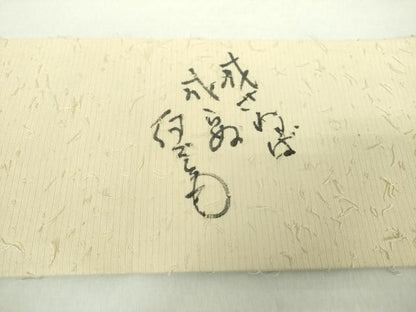 成さねば
成らぬ
何ごとも